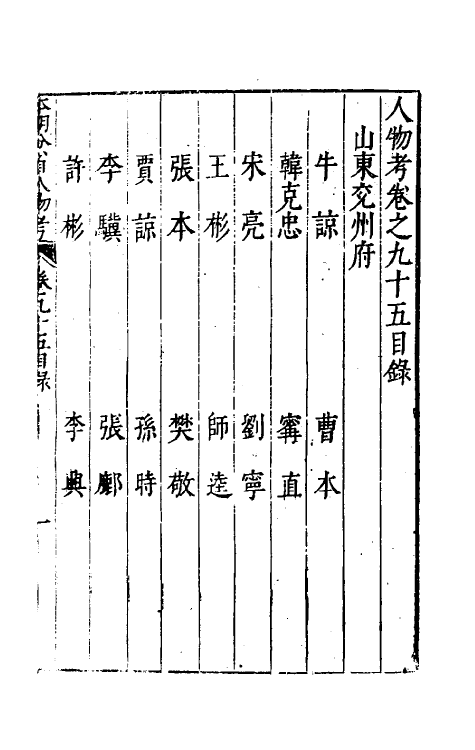 人物考卷之九十五目錄
山東兗州府
牛諒　曹本
韓克忠　甯直
宋亮　劉寧
王彬　師逵
張本　樊敬
賈諒　孫時
李驥　張鄺
許彬　李典
本朝分省人物考　卷九十五目錄　一